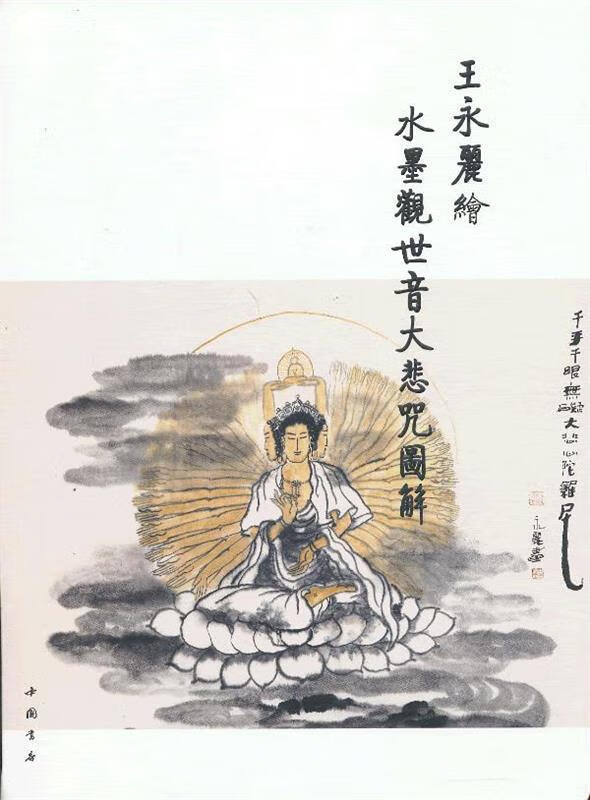 王永麗繪
水墨觀世音大悲咒圖解
千手千眼無礙大悲心陀羅尼
永麗畫
中国書店